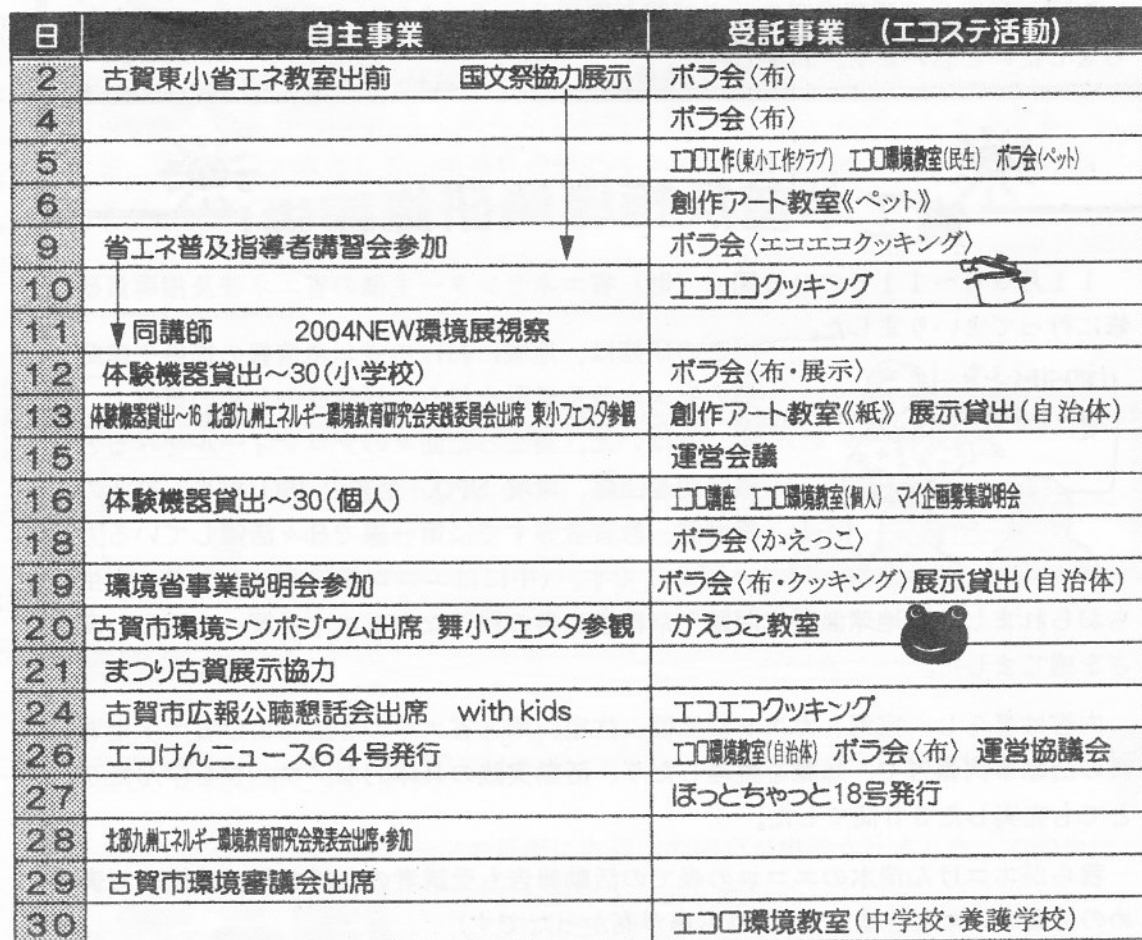 日 自主事業 受託事業 (エコステ活動)
2 古賀東小省エネ教室出前 国文祭協力展示 ボラ会〈布〉
4 ボラ会〈布〉
5 エコロ工作(東小工作クラブ) エコロ環境教室(民生) ボラ会(ペット)
6 創作アート教室《ペット》
9 省エネ普及指導者講習会参加 ボラ会〈エコエコクッキング〉
10 エコエコクッキング
11 同講師 2004NEW環境展視察
12 体験機器貸出～30(小学校) ボラ会〈布・展示〉
13 体験機器貸出～16 北部九州エネルギー環境教育研究会実践委員会出席 東小フェスタ参観 創作アート教室《紙》 展示貸出(自治体)
15 運営会議
16 体験機器貸出～30(個人) エコロ講座 エコロ環境教室(個人) マイ企画募集説明会
18 ボラ会〈かえっこ〉
19 環境省事業説明会参加 ボラ会〈布・クッキング〉展示貸出(自治体)
20 古賀市環境シンポジウム出席 舞小フェスタ参観 かえっこ教室
21 まつり古賀展示協力
24 古賀市広報公聴懇話会出席 with kids エコエコクッキング
26 エコけんニュース64号発行 エコロ環境教室(自治体) ボラ会〈布〉 運営協議会
27 ほっとちゃっと18号発行
28 北部九州エネルギー環境教育研究会発表会出席・参加
29 古賀市環境審議会出席
30 エコロ環境教室(中学校・養護学校)